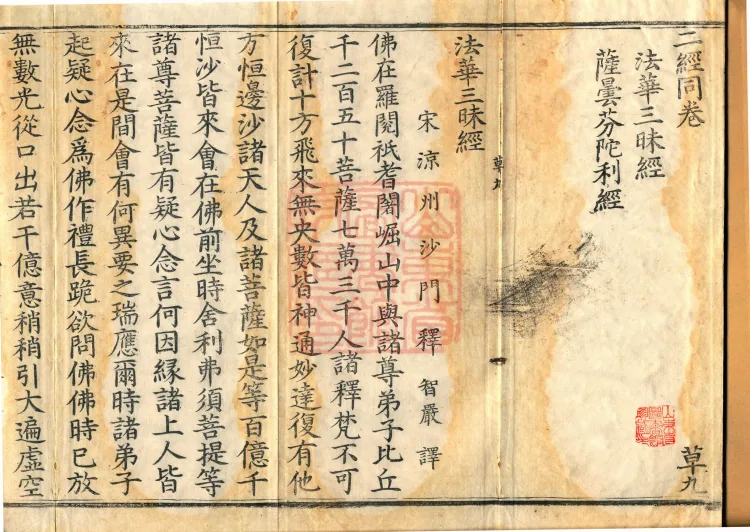 二經同卷
草九
法華三昧經
薩曇芬陀利經
草九
法華三昧經
宋涼州沙門釋智嚴譯
佛在羅閱祇耆闍崛山中與諸尊弟子比丘
千二百五十菩薩七萬三千人諸釋梵不可
復計十方飛來無央數皆神通妙達復有他
方恒邊沙諸天人及諸菩薩如是等百億千
恒沙皆來會在佛前坐時舍利弗須菩提等
諸尊菩薩皆有疑心念言何因緣諸上人皆
來在是間會有何異要之瑞應爾時諸弟子
起疑心念爲佛作禮長跪欲問佛佛時已放
無數光從口出若干億意稍稍引大遍虛空